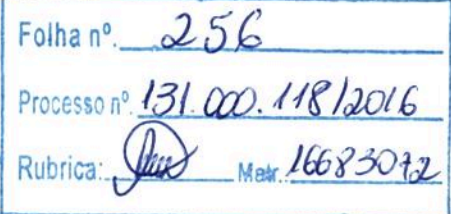 Folha nº. 256
Processo nº. 131.000.118/2016
Rubrica: Matr. 16683072